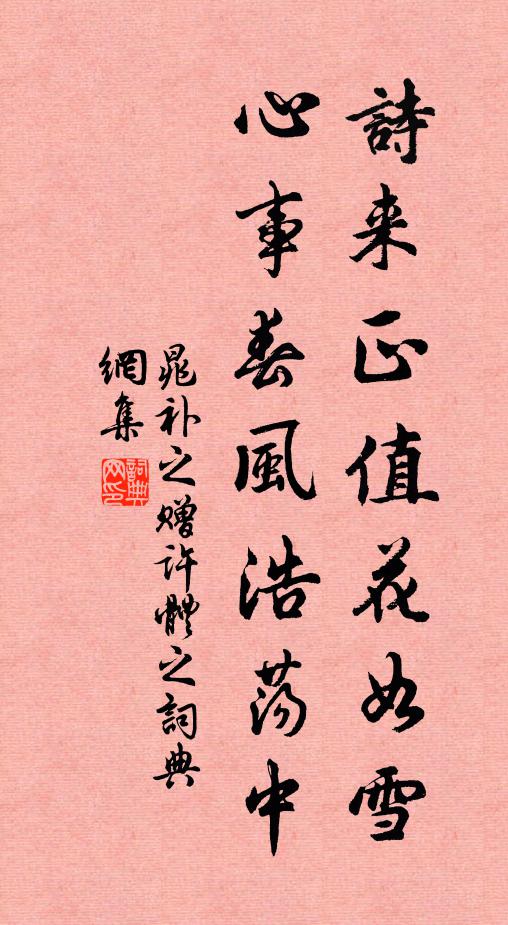 詩来正值花如雪
心事春風浩蕩中
晁补之赠许體之詞典
網集
詞典网印